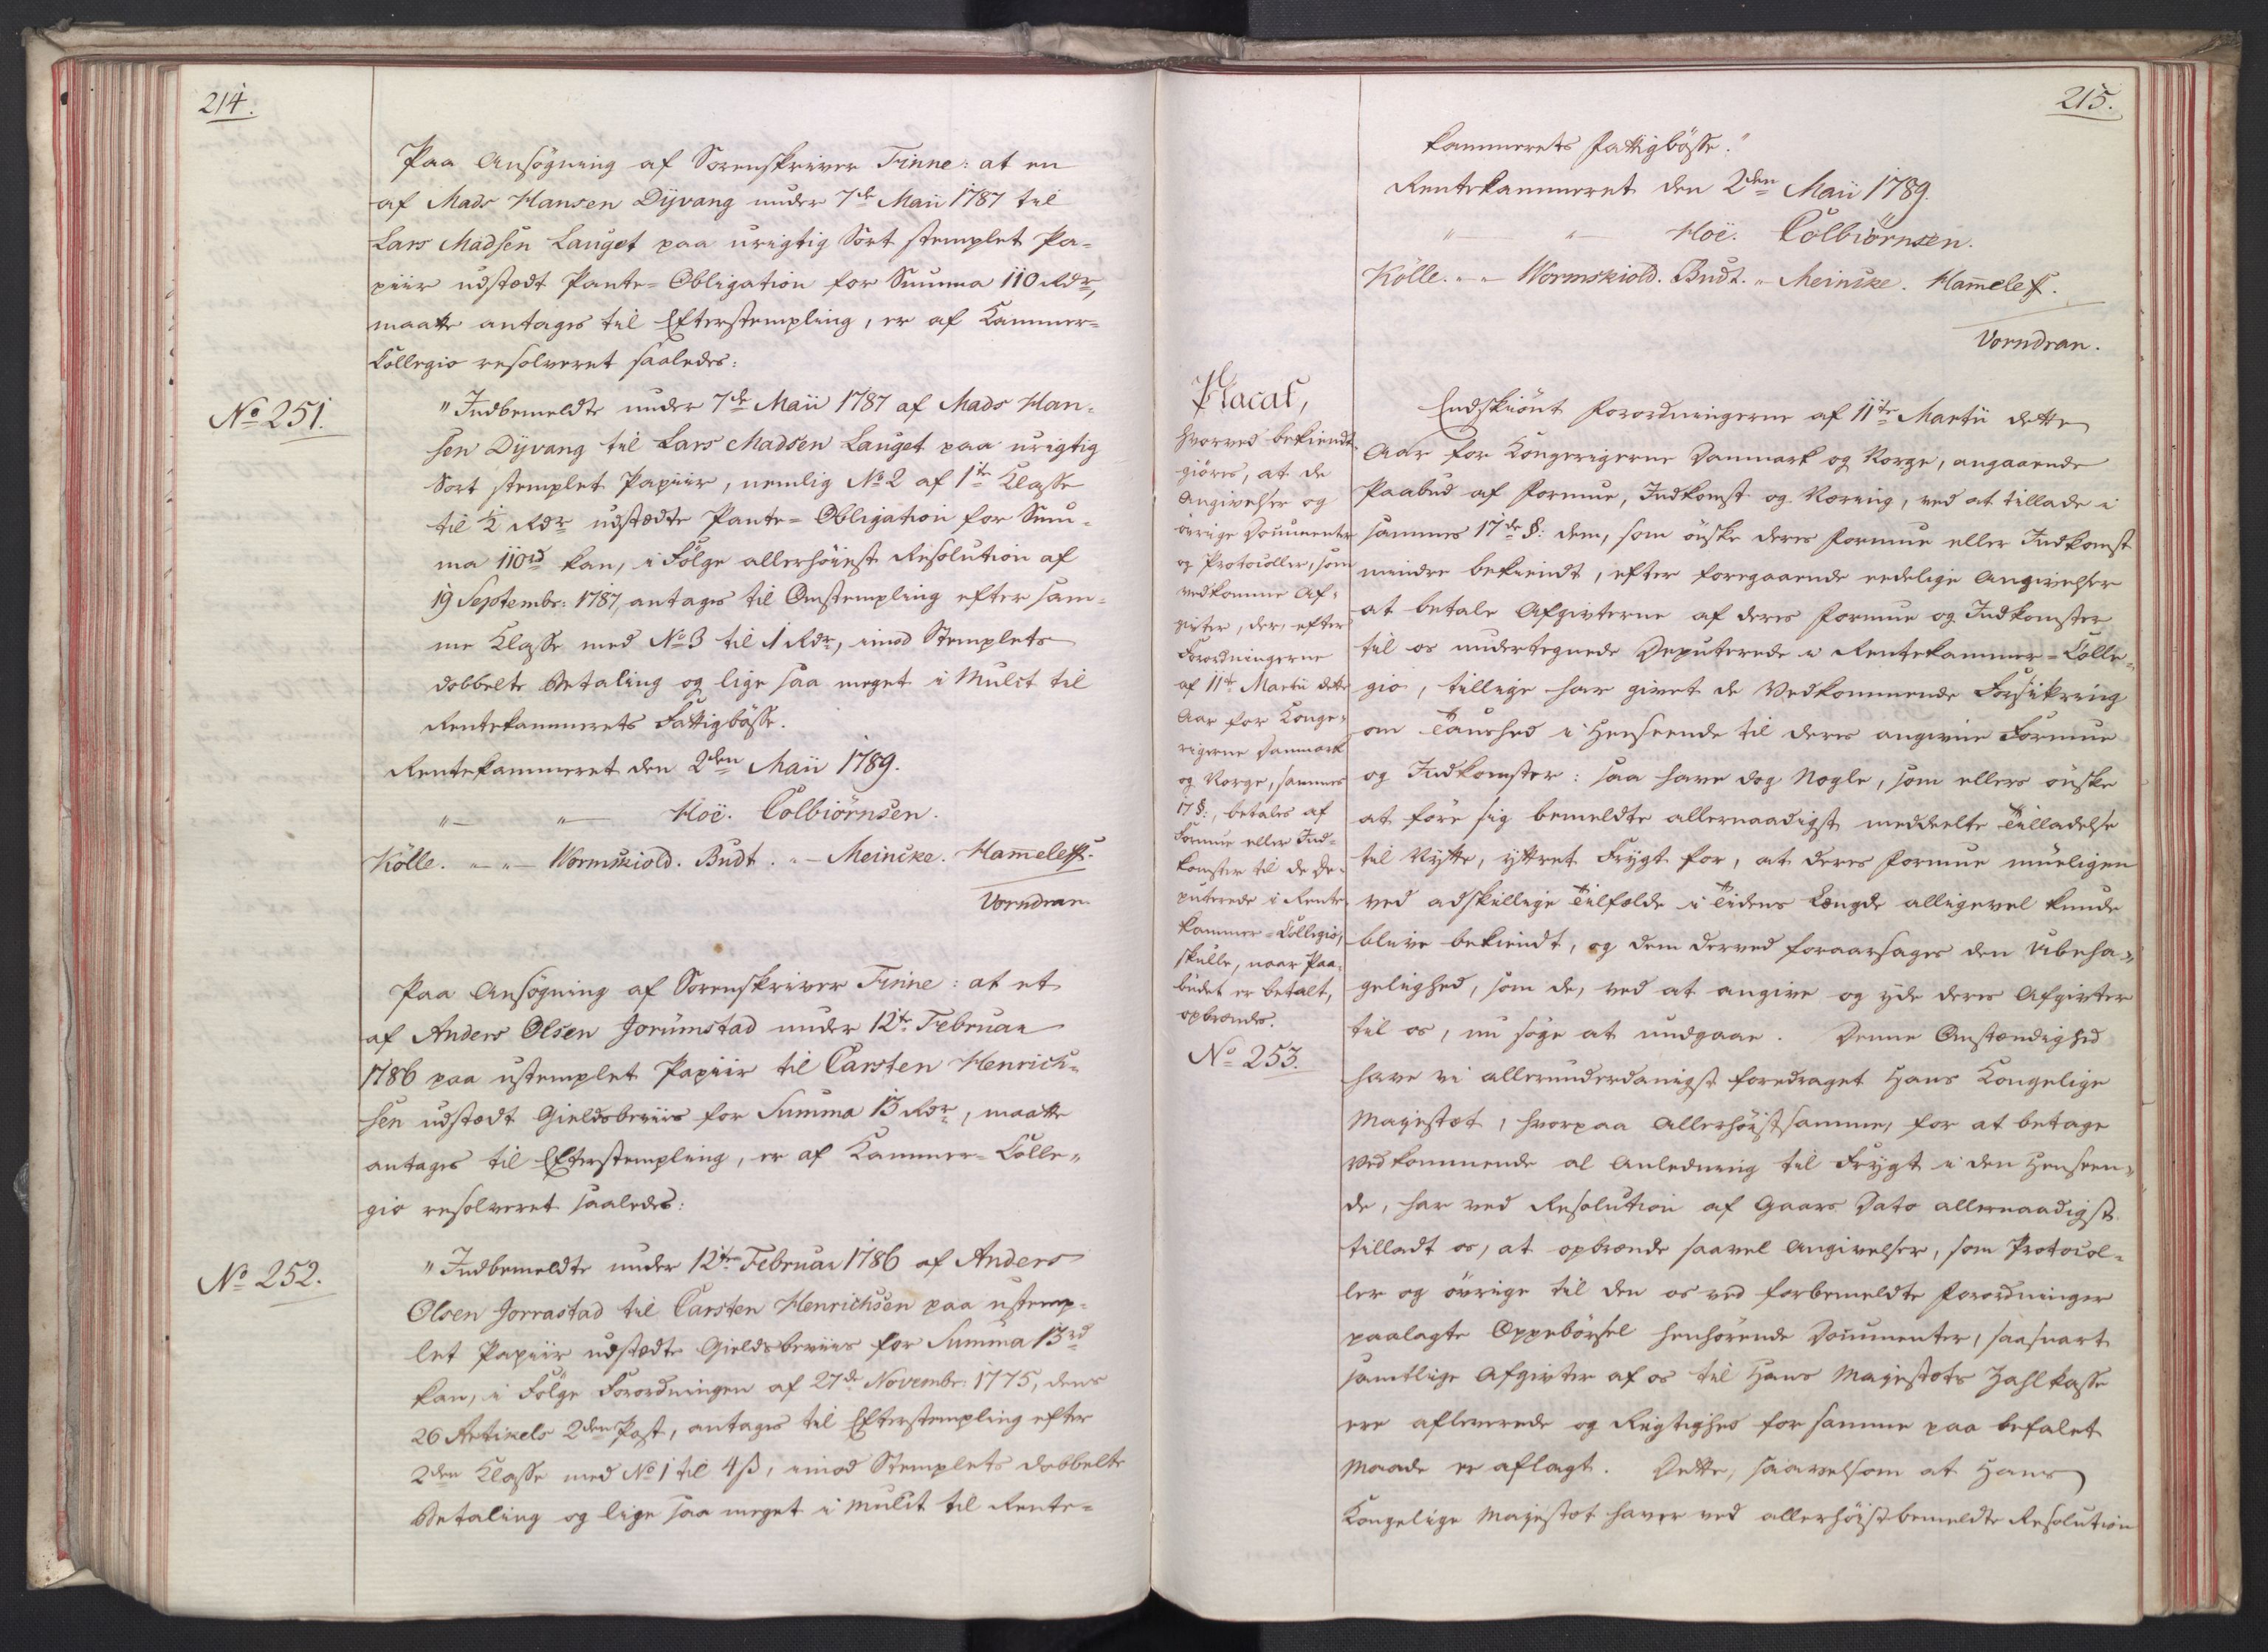 214.
Paa Ansögning af Sorenskriver Finne: at en
af Mads Hansen Dÿvang under 7de Maii 1787 til
Lars Madsen Lauget paa urigtig Sort stemplet Pa-
piir udstædt Pante-Obligation for Summa 110 Rdr,
maatte antages til Efterstempling, er af Kammer-
Collegio resolveret saaledes:
No 251.
"Indbemeldte under 7de Maii 1787 af Mads Han-
sen Dÿvang til Lars Madsen Lauget paa urigtig
Sort stemplet Papiir, nemlig No 2 af 1te Classe
til ½ Rdr udstædte Pante-Obligation for Sum-
ma 110rd kan, i Fölge allerhöieste Resolution af
19 Septembr: 1787, antages til Omstempling efter sam-
me Classe med No 3 til 1 Rdr, imod Stemplets
dobbelte Betaling og lige saa meget i Mulct til
Rentekammerets Fattigbösse.
Rentekammeret den 2den Maii 1789.
"— "— Hoë. Colbiörnsen.
Kölle. "—"— Wormskiold. Budt. "— Meincke. Ham̄eleff.
Vorndran.
Paa Ansögning af Sorenskriver Finne: at et
af Anders Olsen Jorumstad under 12te Februar
1786 paa ustemplet Papiir til Carsten Henrich-
sen udstædt Gieldsbeviis for Summa 13 Rdr, maatte
antages til Efterstempling, er af Kammer-Colle-
gio resolveret saaledes:
No 252.
"Indbemeldte under 12te Februar 1786 af Anders
Olsen Jorrastad til Carsten Henrichsen paa ustemp-
let Papiir udstædte Gieldsbeviis for Summa 13rd
kan, i Fölge Forordningen af 27de Novembr: 1775, dens
26 Artikels 2den Post, antages til Efterstempling efter
2den Classe med No 1 til 4 ß, imod Stemplets dobbelte
Betaling og lige saa meget i Mulct til Rente-
215.
kammerets Fattigbösse."
Rentekammeret den 2den Maii 1789.
"— "— Hoë. Colbiörnsen.
Kölle. "—"— Wormskiold. Budt. "— Meincke. Ham̄eleff.
Vorndran.
Placat,
hvorved bekiendt-
giöres, at de
Angivelser og
övrige Documenter
og Protocoller, som
vedkomme Af-
givter, der, efter
Forordningerne
af 11te Martii dette
Aar for Konge-
rigerne Danmark
og Norge, sammes
17 §:, betales af
Formue eller Ind-
komster til de De-
puterede i Rente-
kammer-Collegio,
skulle, naar Paa-
budet er betalt,
opbrændes.
No 253.
Endskiönt Forordningerne af 11te Martii dette
Aar for Kongerigerne Danmark og Norge, angaaende
Paabud af Formue, Indkomst og Næring, ved at tillade i
sammes 17de §: dem, som önske deres Formue eller Indkomst
mindre bekiendt, efter foregaaende eedelige Angivelser
at betale Afgivterne af deres Formue og Indkomster
til os undertegnede Deputerede i Rentekammer-Colle-
gio, tillige har givet de Vedkommende Forsikkring
om Taushed i Henseende til deres angivne Formue
og Indkomster: saa have dog Nogle, som ellers önske
at före sig bemeldte allernaadigst meddeelte Tilladelse
til Nytte, yttret Frygt for, at deres Formue mueligen
ved adskillige Tilfælde i Tidens Længde alligevel kunde
blive bekiendt, og dem derved foraarsages den Ubeha-
gelighed, som de, ved at angive og yde deres Afgivter
til os, nu söge at undgaae. Denne Omstændighed
have vi allerunderdanigst foredraget Hans Kongelige
Majestæt, hvorpaa Allerhöistsamme, for at betage
Vedkommende al Anledning til Frygt i den Henseen-
de, har ved Resolution af Gaars Dato allernaadigst
tilladt os, at opbrænde saavel Angivelser, som Protocol-
ler og övrige til den os ved forbemeldte Forordninger
paalagte Oppebörsel henhörende Documenter, saasnart
samtlige Afgivter af os til Hans Majestæts Zahlkasse
ere afleverede og Rigtighed for samme paa befalet
Maade er aflagt. Dette, saavelsom at Hans
Kongelige Majestæt haver ved allerhöistbemeldte Resolution